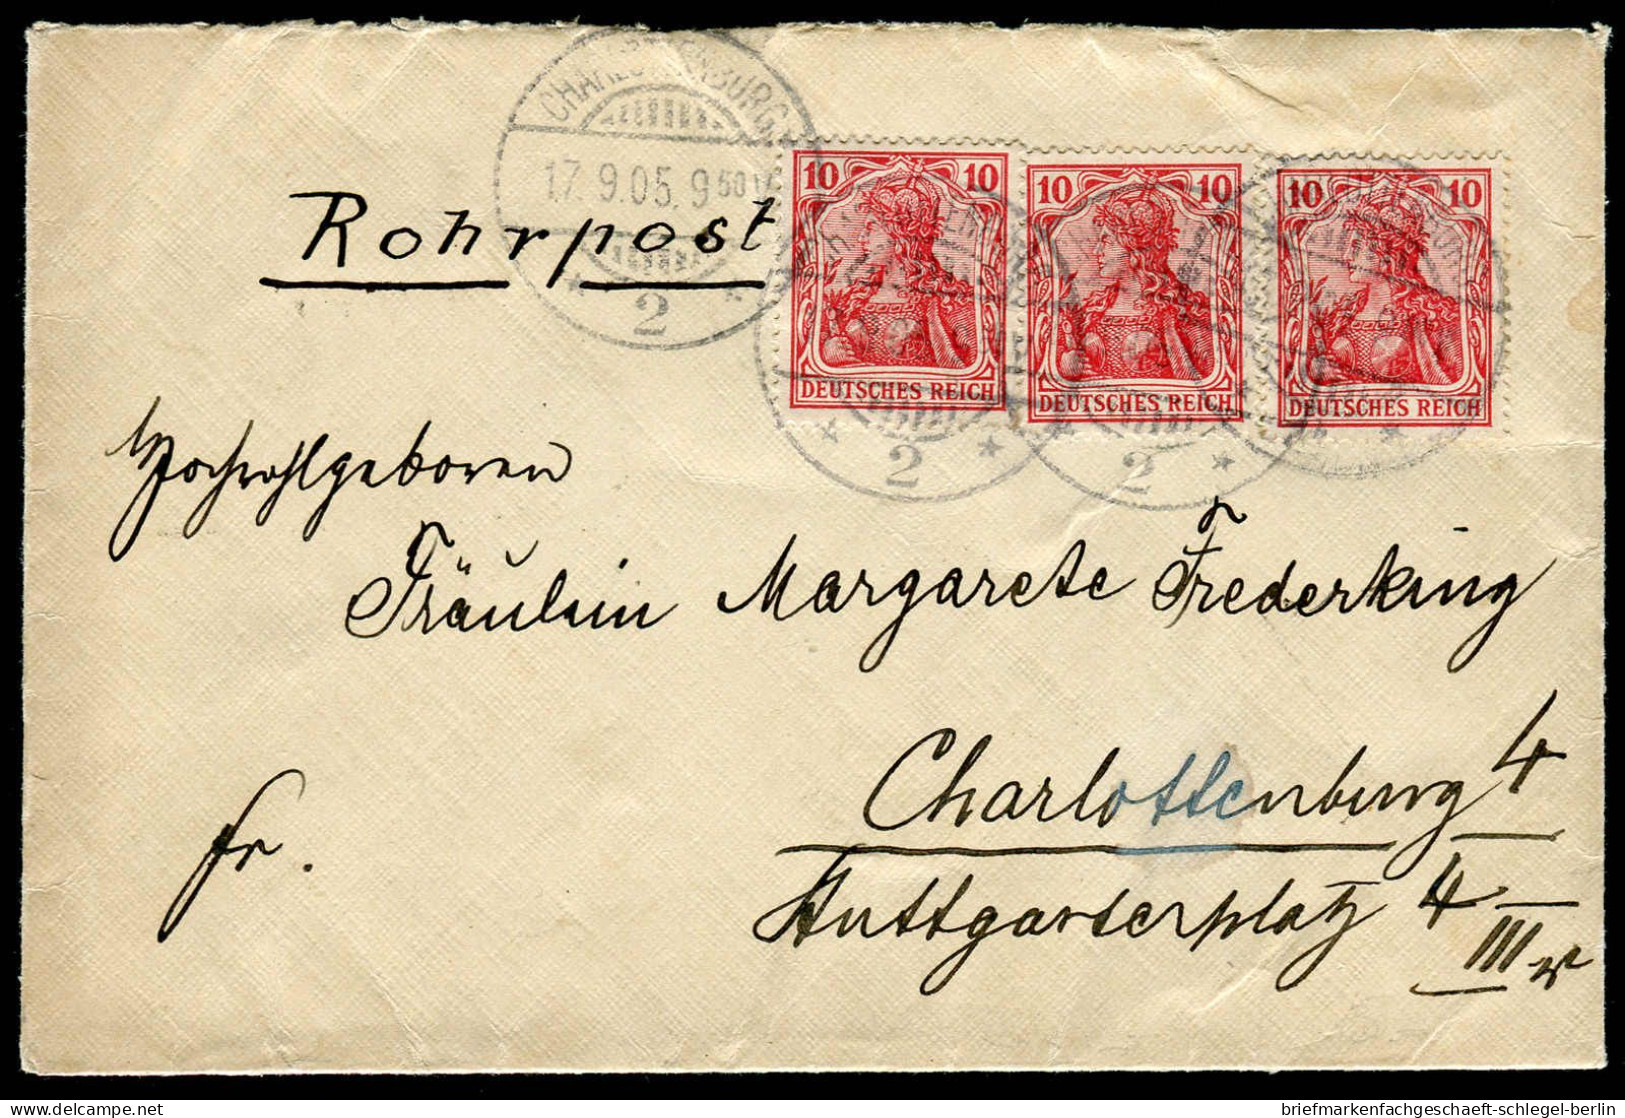 CHARLOTTENBURG
17.9.05. 9 50 V
* 2 *
Rohrpost
10 10
DEUTSCHES REICH
2
10 10
DEUTSCHES REICH
2
10 10
DEUTSCHES REICH
Hochwohlgeboren
Fräulein Margarete Frederking
Charlottenburg 4
fr.
Stuttgarterplatz 4
III
briefmarkenfachgeschaeft-schlegel-berlin